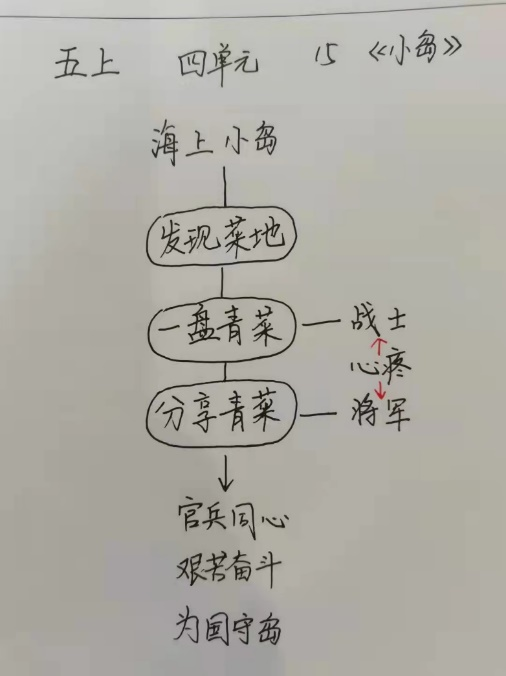 五上 四单元 15《小岛》
海上小岛
发现菜地
一盘青菜 战士
心疼
分享青菜 将军
官兵同心
艰苦奋斗
为国守岛